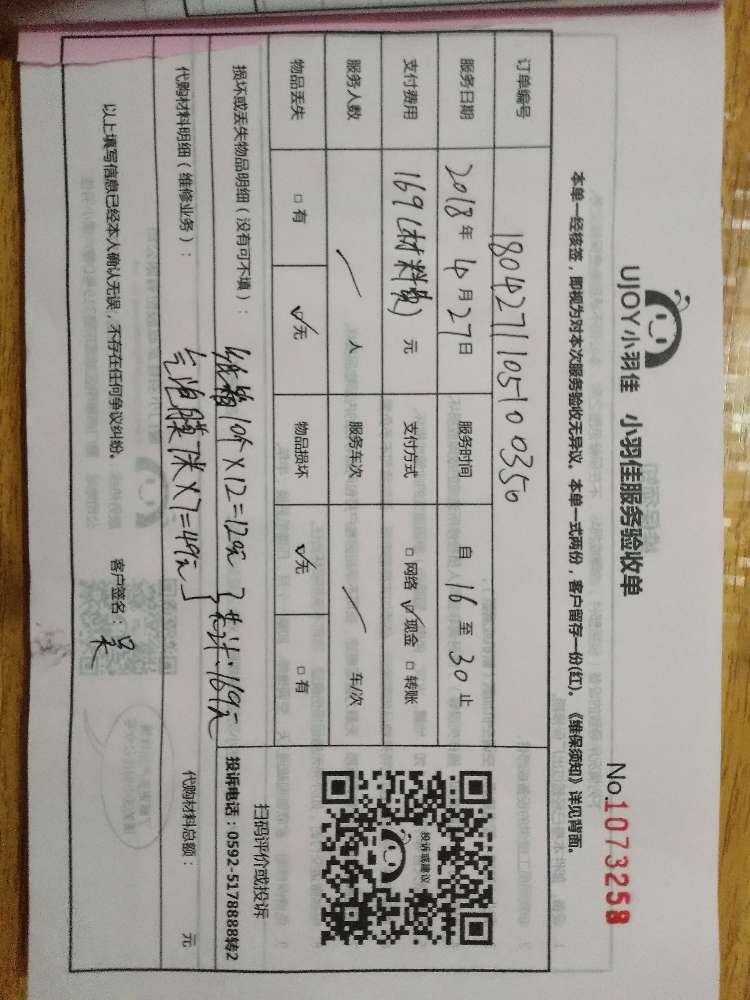 UJOY小羽佳 小羽佳服务验收单
No.1073258
本单一经核签，即视为对本次服务验收无异议。本单一式两份，客户留存一份(红)。《维保须知》详见背面。
订单编号 1804271105100350
服务日期 2018年4月27日 服务时间 自16至30止
支付费用 169(材料费)元 支付方式 □网络 ☑现金 □转账
服务人数 / 人 服务车次 / 车/次
物品丢失 □有 ☑无 物品损坏 ☑无 □有
投诉或建议
扫码评价或投诉
投诉电话：0592-5178888转2
损坏或丢失物品明细（没有可不填）：
纸箱10个×12=120元
代购材料明细（维修业务）：
气泡膜7米×7=49元
共计:169元
代购材料总额： 元
以上填写信息已经本人确认无误，不存在任何争议纠纷。 客户签名：吴